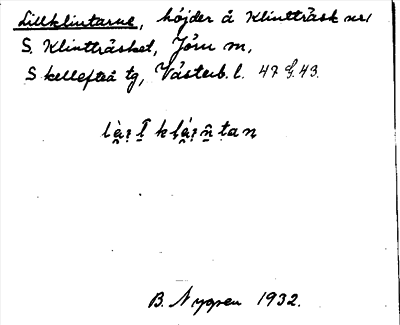 Lillklintarne, höjder å Klintträsk nr 1
S. Klintträsket, Jörn sn,
Skellefteå tg, Västerb. l. 47 f. 43.
B. Nygren 1932.